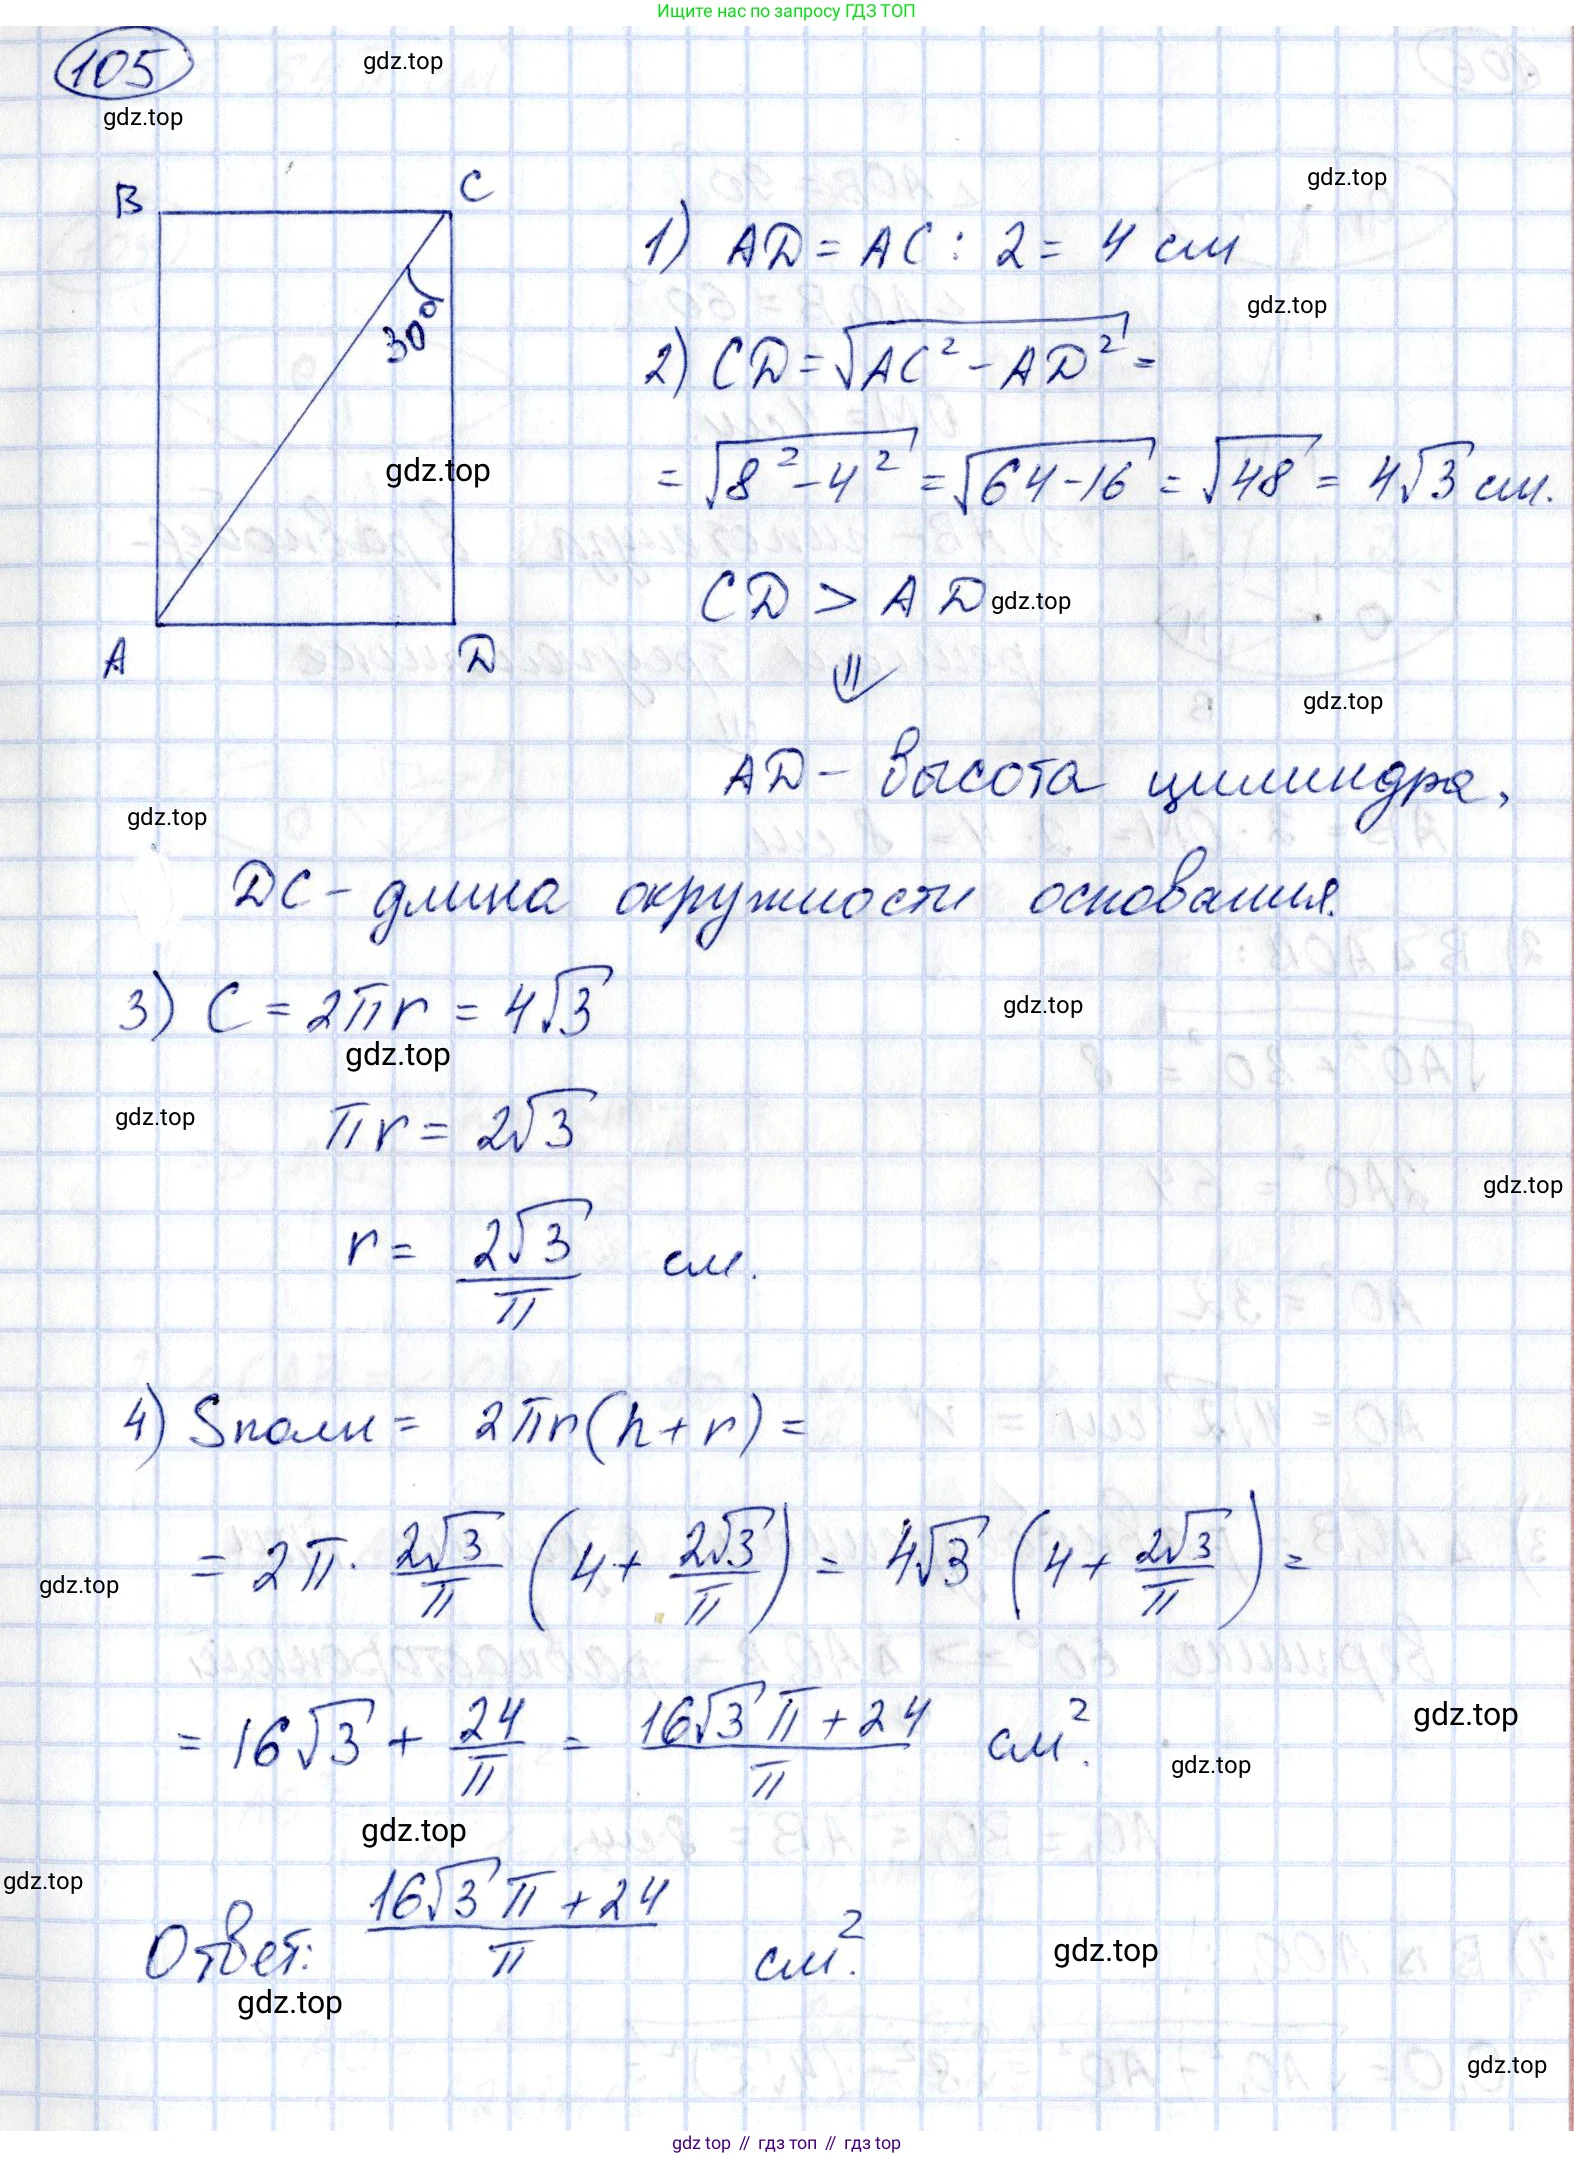 Ищите нас по запросу ГДЗ ТОП
105
gdz.top
gdz.top
gdz.top
B C
30°
A D
gdz.top
1) AD = AC : 2 = 4 см
gdz.top
2) CD = √(AC² - AD²) =
= √(8² - 4²) = √(64-16) = √48 = 4√3 см.
CD > AD
gdz.top
⇓
gdz.top
AD - высота цилиндра,
gdz.top
DC - длина окружности основания.
3) C = 2πr = 4√3
gdz.top
gdz.top
πr = 2√3
gdz.top
gdz.top
r = 2√3/π см.
4) Sполн = 2πr(h+r) =
= 2π · 2√3/π (4 + 2√3/π) = 4√3 (4 + 2√3/π) =
gdz.top
= 16√3 + 24/π = (16√3 π + 24)/π см².
gdz.top
gdz.top
gdz.top
gdz.top
Ответ: (16√3 π + 24)/π см².
gdz.top
gdz.top
gdz.top
gdz top // гдз топ // гдз top